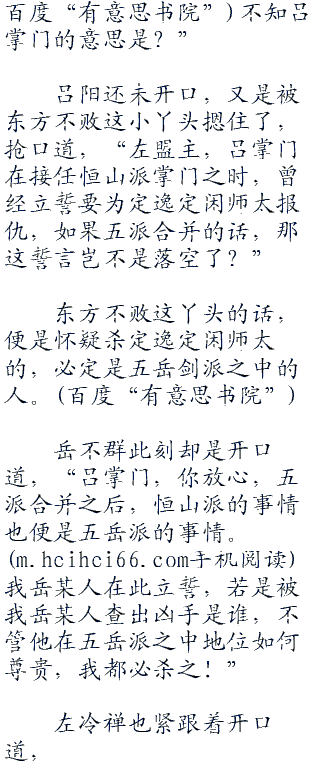 百度“有意思书院”)不知吕
掌门的意思是？”
吕阳还未开口，又是被
东方不败这小丫头摁住了，
抢口道，“左盟主，吕掌门
在接任恒山派掌门之时，曾
经立誓要为定逸定闲师太报
仇，如果五派合并的话，那
这誓言岂不是落空了？”
东方不败这丫头的话，
便是怀疑杀定逸定闲师太
的，必定是五岳剑派之中的
人。(百度“有意思书院”)
岳不群此刻却是开口
道，“吕掌门，你放心，五
派合并之后，恒山派的事情
也便是五岳派的事情。
(m.hcihci66.com手机阅读)
我岳某人在此立誓，若是被
我岳某人查出凶手是谁，不
管他在五岳派之中地位如何
尊贵，我都必杀之！”
左冷禅也紧跟着开口
道，